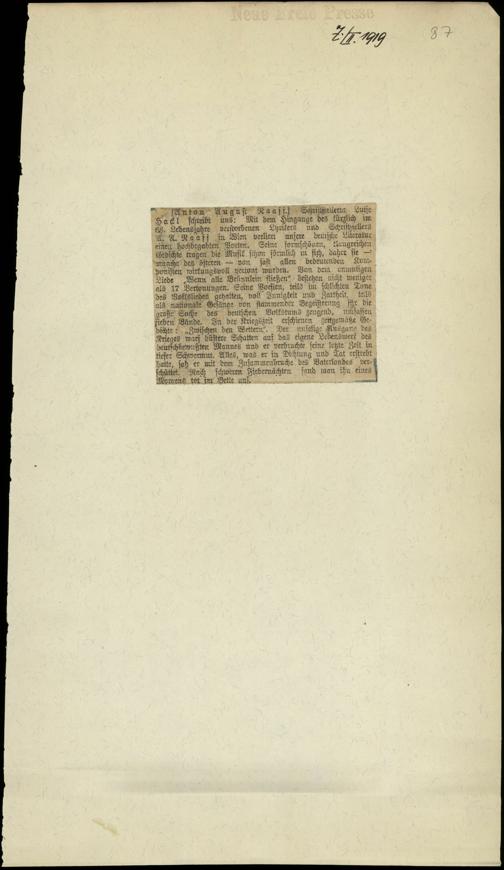 Neue Freie Presse
7./II. 1919
87
[Anton August Naaff.] Schriftstellerin Luise
Hackl schreibt uns: Mit dem Hingange des kürzlich im
Lebensjahre verstorbenen Lyrikers und Schriftstellers
A. A. Naaff in Wien verliert unsere deutsche Literatur
einen hochbegabten Poeten. Seine formschönen, klangreichen
Gedichte tragen die Musik schon förmlich in sich, daher sie —
manche des öfteren — von fast allen bedeutenden Kom-
ponisten wirkungsvoll vertont wurden. Von dem anmutigen
Liede „Wenn alle Brünnlein fließen“ bestehen nicht weniger
als 17 Vertonungen. Seine Poesien, teils im schlichten Tone
des Volksliedes gehalten, voll Innigkeit und Zartheit, teils
als nationale Gesänge von flammender Begeisterung für die
große Sache des deutschen Volkstums zeugend, umfassen
sieben Bände. In der Kriegszeit erschienen zeitgemäße Ge-
dichte: „Zwischen den Wettern“. Der unselige Ausgang des
Krieges warf düstere Schatten auf das eigene Lebenswerk des
deutschbewußten Mannes und er verbrachte seine letzte Zeit in
tiefer Schwermut. Alles, was er in Dichtung und Tat erstrebt
hatte, sah er mit dem Zusammenbruche des Vaterlandes ver-
schüttet. Nach schweren Fiebernächten fand man ihn eines
Morgens tot im Bette auf.